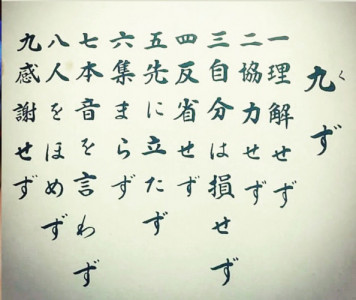 九ず
く
一理解せず
二協力せず
三自分は損せず
四反省せず
五先に立たず
六集まらず
七本音を言わず
八人をほめず
九感謝せず